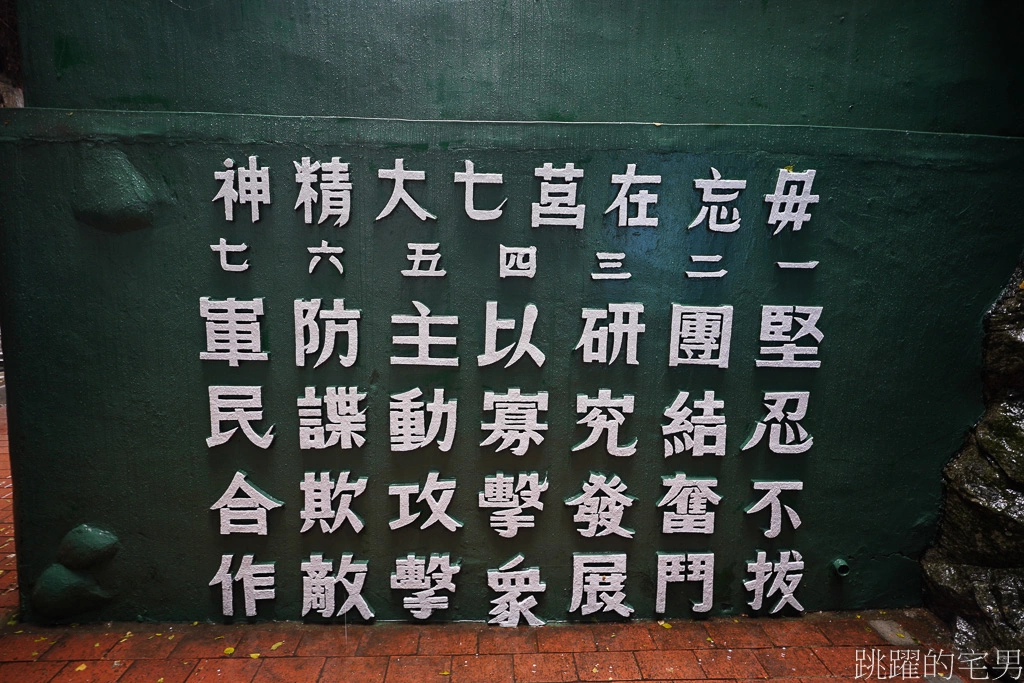 毋忘在莒七大精神
一堅忍不拔
二團結奮鬥
三研究發展
四以寡擊眾
五主動攻擊
六防諜欺敵
七軍民合作
跳躍的宅男